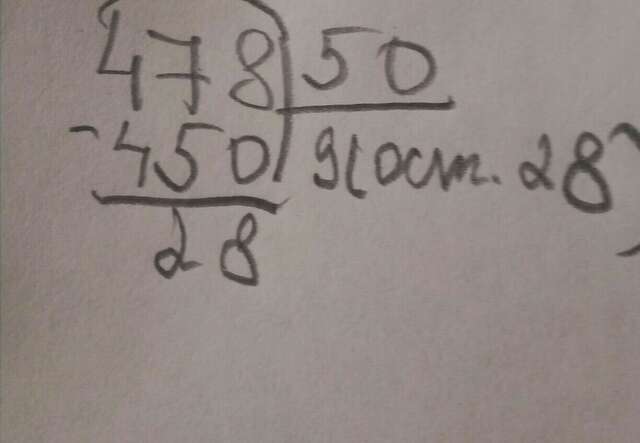 478 50
- 450 9(ост. 28)
28